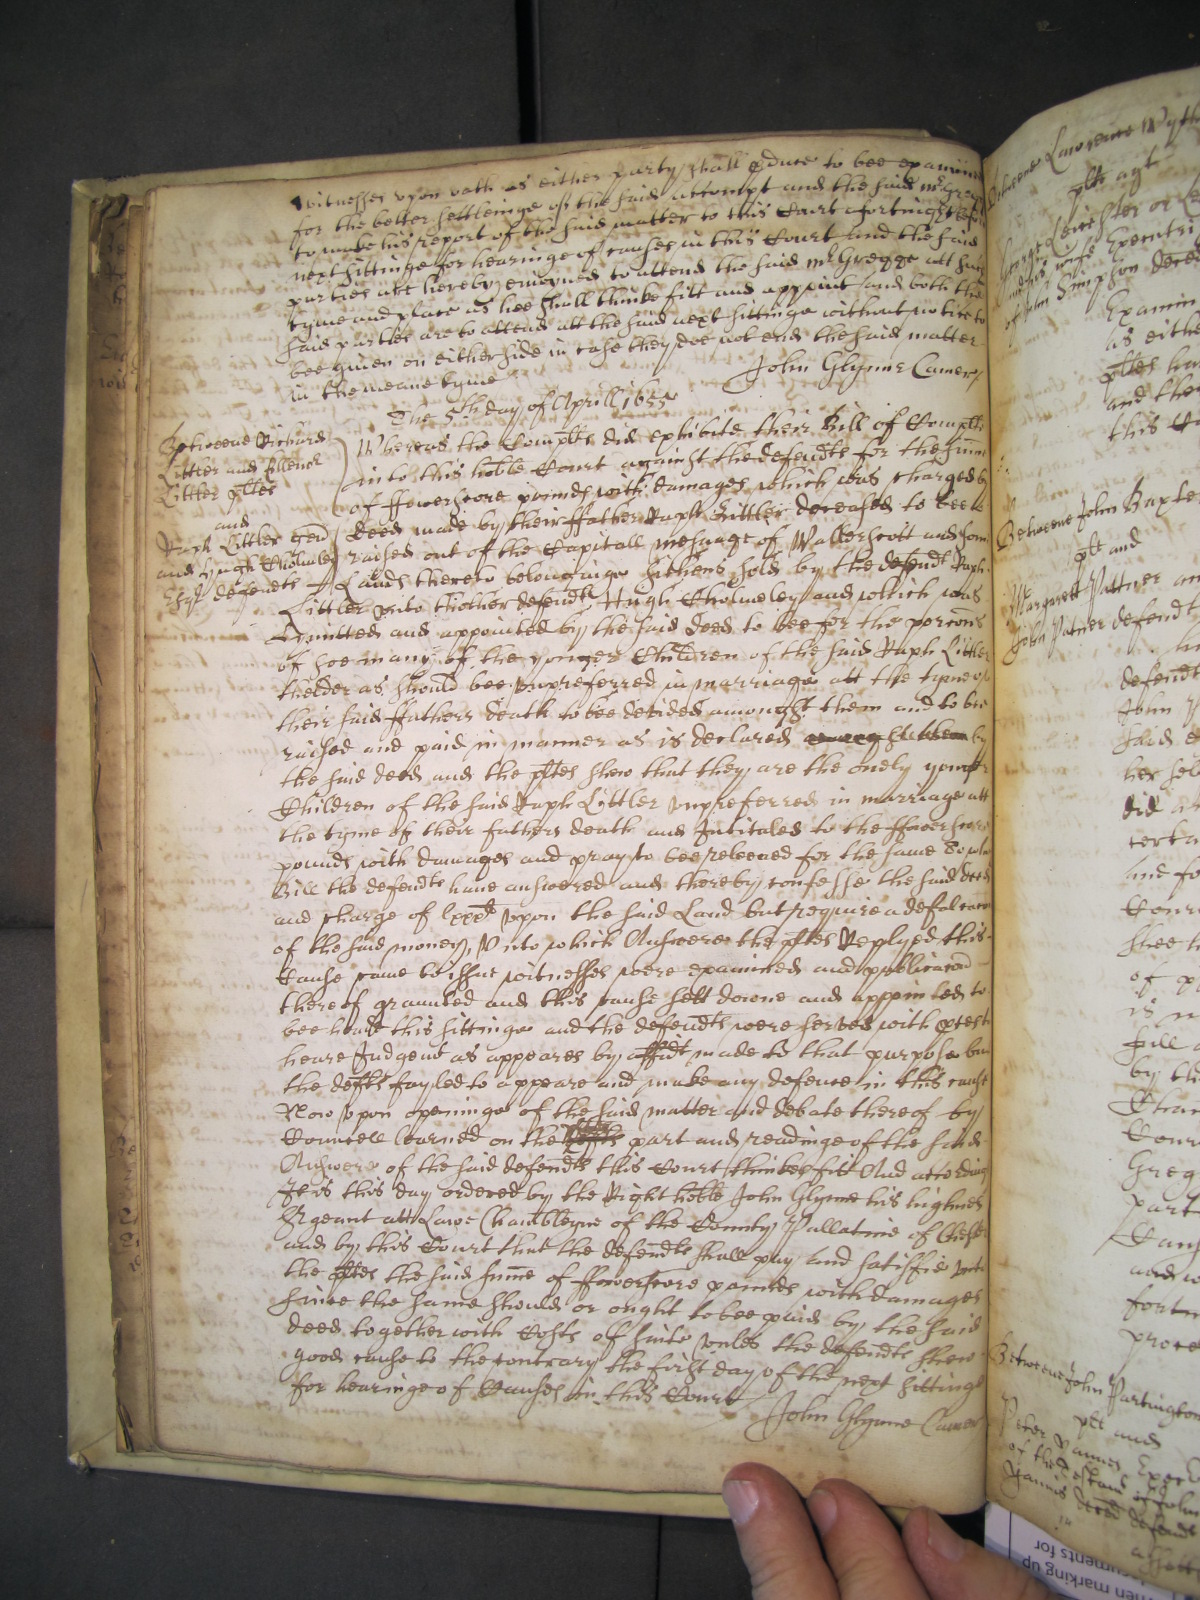 witnesses vpon oath as either party shall pduce to bee examined
for the better setleinge of the said accompt and the said Mr Gregge
to make his report of the said matter to this Court a fortnight before
next sittinge for hearinge of causes in this Court And the said
parties are hereby enioyned to attend the said Mr Gregge att such
tyme and place as hee shall thinke fitt and appoint and both the
said parties are to attend att the said next sittinge without notice to
bee given on either side in case they doe not end the said matter
in the meane tyme
John Glynne Camer
The 5th day of Aprill 1655
Betweene Richard
Litler and Ellenor
Litler pltes
and
Raph Littler gen
and Hugh Cholmley
Esqr defendts
Whereas the Complts did exhibite their Bill of Complt
into this hoble Court against the defendts for the summe
of ffowerscore pounds with damages which was charged by
deed made by their ffather Raph Littler deceased to beee
raised out of the Capitall mesuage of Wallerscott and some
Lands thereto belonginge sithens sold by the defendt Raph
Littler vnto thother defendt Hugh Cholmeley and which was
Limitted and appointed by the said deed to bee for the porcons
of soe many of the yonger Children of the said Raph Littler
thelder as should bee vnpreferred in marriage att the tyme of
their said ffathers death to bee devided amongst them and to bee
raised and paid in manner as is declared by
the said deed and the pltes shew that they are the onely yonger
Children of the said Raph Littler vnpreferred in marriage att
the tyme of their fathers death and Intitaled to the ffowerscore
pounds with damages and pray to bee releeved for the same To wch
Bill the defendts have answered and thereby confesse the said deed
and charge of lxxxl vppon the said Land but require a defalcacon
of the said money, Vnto which Answere the pltes Replyed this
Cause came to issue witnesses were examined and publicacon
thereof graunted and this cause sett downe and appointed to
bee heard this sittinge and the defendts were served with pces to
heare Judgmt as appeares by affidt made to that purpose but
the defts fayled to appeare and make any defence in this cause
Now vpon openinge of the said matter and debate thereof by
Councell learned on the part and readinge of the said
Answere of the said defendts this Court thinkes fitt And accordingly
It is this day ordered by the Right hoble John Glynne his highnes
Srgeant att Lawe Chamberleyne of the County Pallatine of Chester
and by this Court that the defendts shall pay and satisfie vnto
the pltes the said summe of ffowerscore pounds with damages
since the same should or ought to bee paid by the said
deed together with Costs of suite vnles the defendts shew
good cause to the contrary the first day of the next sittinge
for hearinge of Causes in this Court
John Glynne Camer
Betweene Lawrence
plt agt
George Leicester
and his wife Executri
of John Simpson deced
Examin
as eithe
pltes ha
and the
this Co
Betweene John Baxter
plt and
Margarett
John defendt
defendt
John
said
her
did
certa
and fo
Cour
shee
of p
is n
full
by th
Char
Cour
Greg
part
Caus
and w
fort
proce
Betweene John Partington
plt and
Peter Execu
of the of John
deced defendt